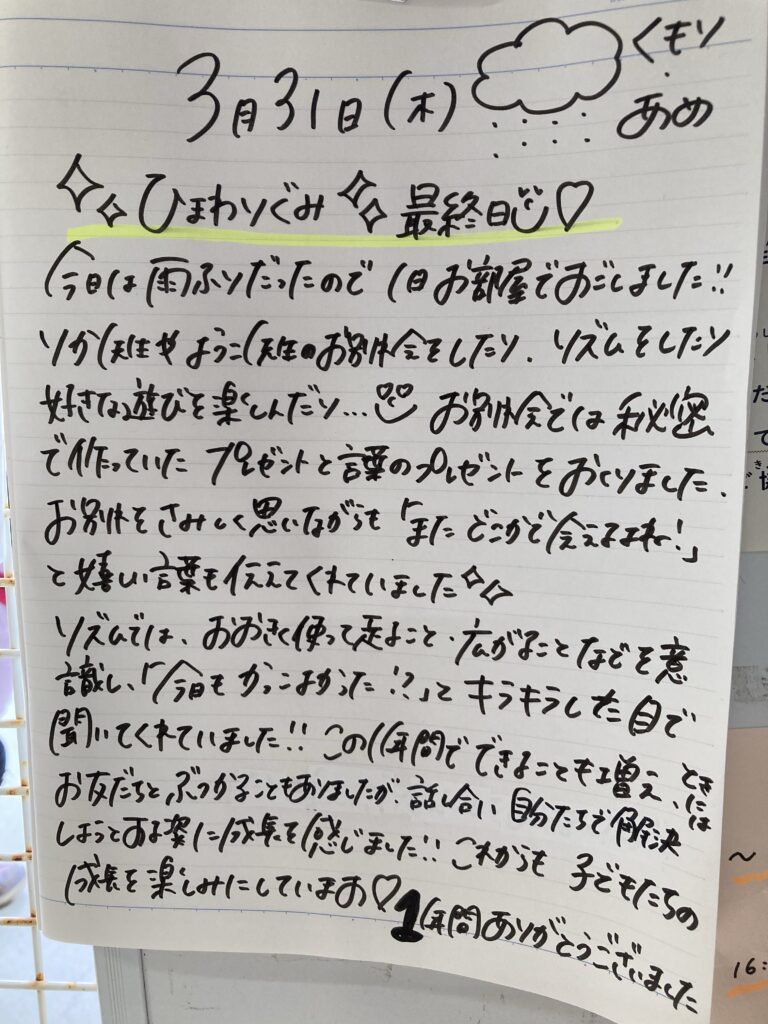 3月31日(木)
くもり
あめ
ひまわりぐみ 最終日♡
今日は雨ふりだったので 1日お部屋ですごしました!!
りか先生やようこ先生のお別れ会をしたり、リズムをしたり
好きな遊びを楽しんだり… お別れ会では秘密
で作っていた プレゼントと言葉のプレゼントをおくりました。
お別れをさみしく思いながらも「またどこかで会えるよね〜!」
と嬉しい言葉も伝えてくれていました
リズムでは、おおきく使って走ること・広がることなどを意
識し、「今日もかっこよかった!?」とキラキラした目で
聞いてくれていました!! この1年間でできることも増え、ときには
お友だちとぶつかることもありましたが、話し合い自分たちで解決
しようとする姿に成長を感じました!! これからも子どもたちの
成長を楽しみにしています♡
1年間ありがとうございました
〜
16: